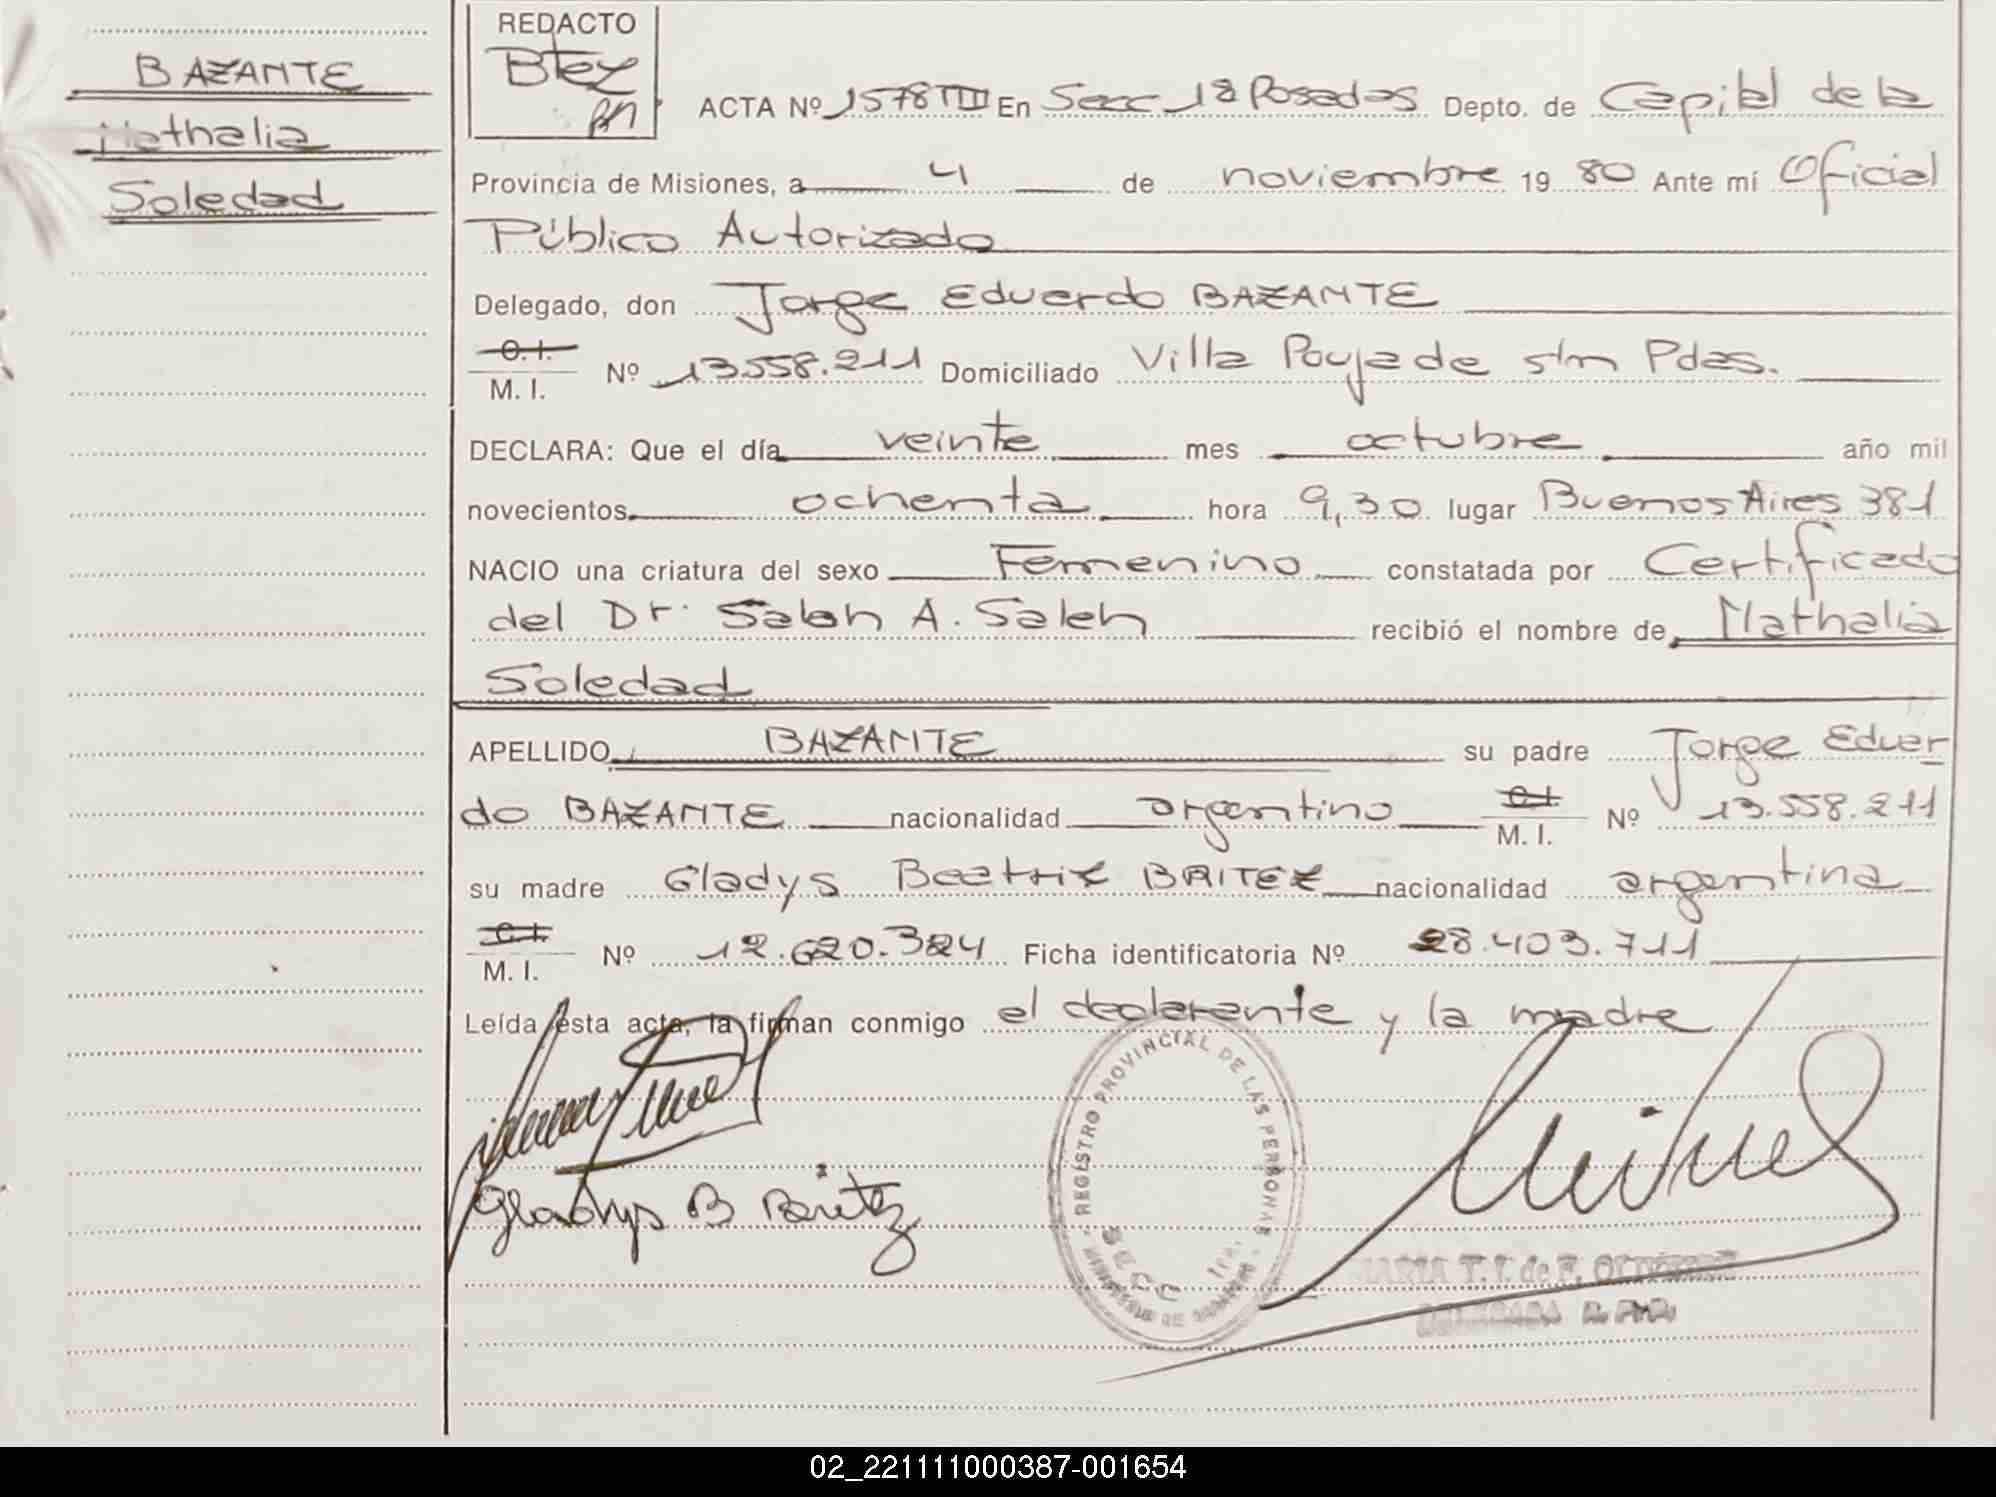 BAZANTE
Nathalia
Soledad
REDACTO
Btez
ACTA Nº 1578 TIII En Secc 1ª Posadas Depto. de Capital de la
Provincia de Misiones, a 4 de noviembre 19 80 Ante mí Oficial
Público Autorizado
Delegado, don Jorge Eduardo BAZANTE
C. I.
M. I. Nº 13.558.211 Domiciliado Villa Poujade s/n Pdas.
DECLARA: Que el día veinte mes octubre año mil
novecientos ochenta hora 9,30 lugar Buenos Aires 381
NACIO una criatura del sexo Femenino constatada por Certificado
del Dr. Salah A. Saleh recibió el nombre de Nathalia
Soledad
APELLIDO BAZANTE su padre Jorge Eduar
do BAZANTE nacionalidad argentino C. I. M. I. Nº 13.558.211
su madre Gladys Beatriz BRITEZ nacionalidad argentina
C. I.
M. I. Nº 12.620.324 Ficha identificatoria Nº 28.403.711
Leída esta acta, la firman conmigo el declarante y la madre
Gladys B Britez
REGISTRO PROVINCIAL DE LAS PERSONAS
SECC 1ra.
MINISTERIO DE GOBIERNO
MARIA T. I. de F.
DELEGADA R. P. P.
02_221111000387-001654